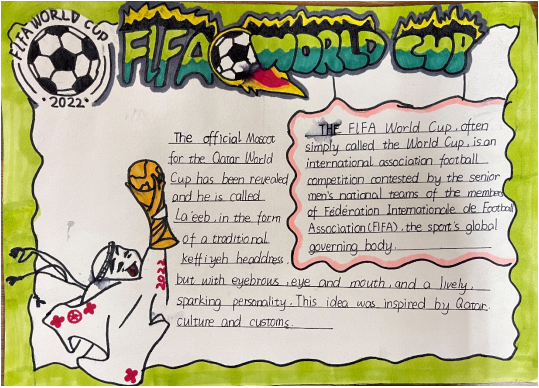 FIFA WORLD CUP
2022
FIFA WORLD CUP
The official Mascot
for the Qatar World
Cup has been revealed
and he is called
La'eeb, in the form
of a traditional
keffiyeh headdress,
but with eyebrows, eye and mouth, and a lively,
sparking personality. This idea was inspired by Qatar
culture and customs.
THE FIFA World Cup, often
simply called the World Cup, is an
international association football
competition contested by the senior
men's national teams of the members
of Fédération Internationale de Football
Association (FIFA), the sport's global
governing body.
2022